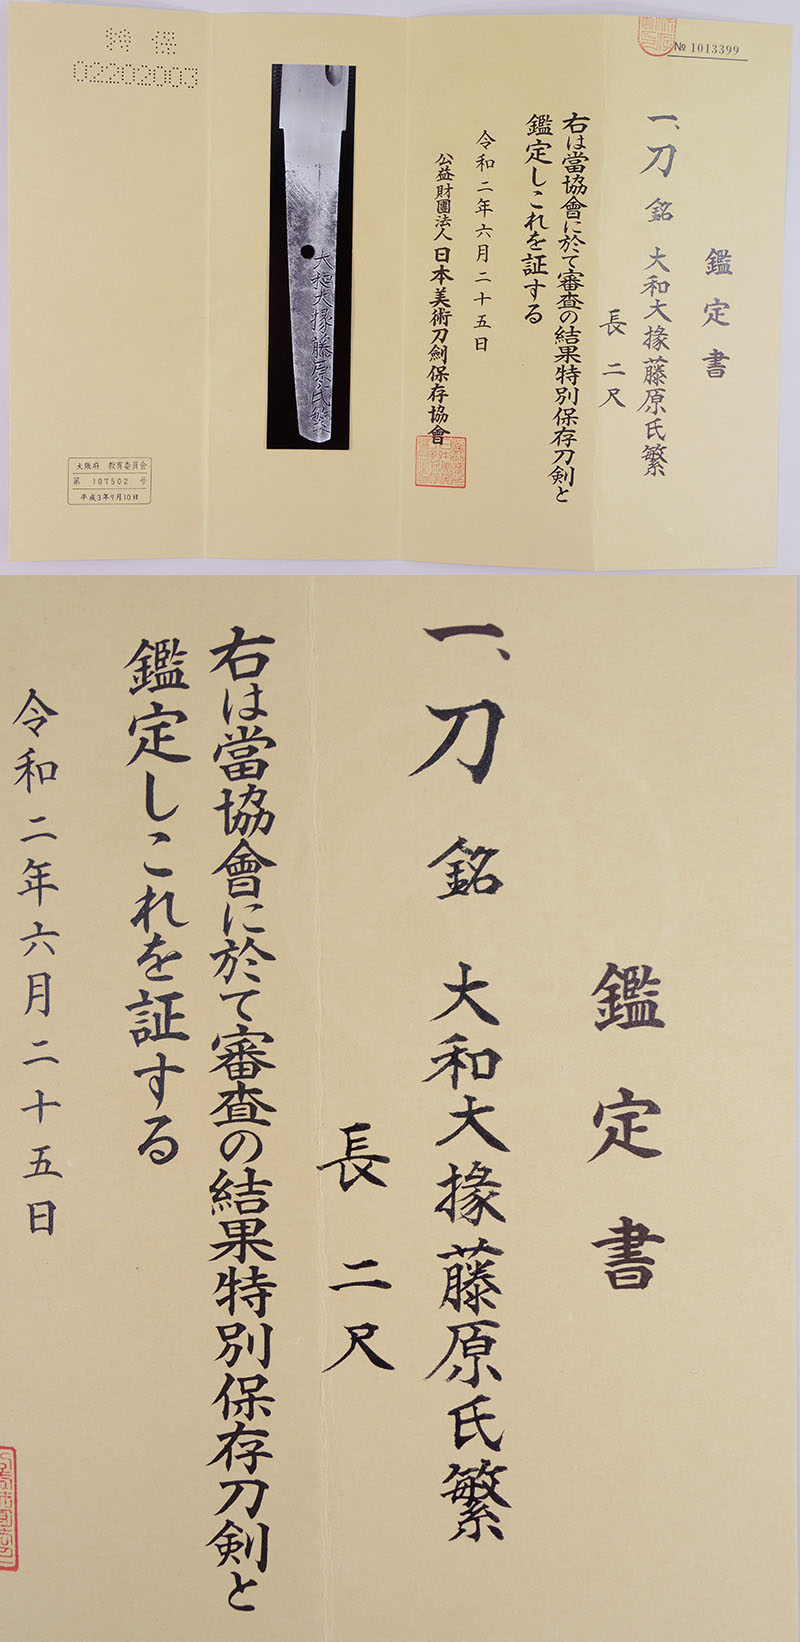 № 1013399
鑑定書
一、刀 銘 大和大掾藤原氏繁
長二尺
右は當協會に於て審査の結果特別保存刀剣と
鑑定しこれを証する
令和二年六月二十五日
公益財團法人 日本美術刀劍保存協會
大和大掾藤原氏繁
特保
02202003
大阪府 教育委員会
第 107502 号
平成3年9月10日
鑑定書
一、刀 銘 大和大掾藤原氏繁
長二尺
右は當協會に於て審査の結果特別保存刀剣と
鑑定しこれを証する
令和二年六月二十五日